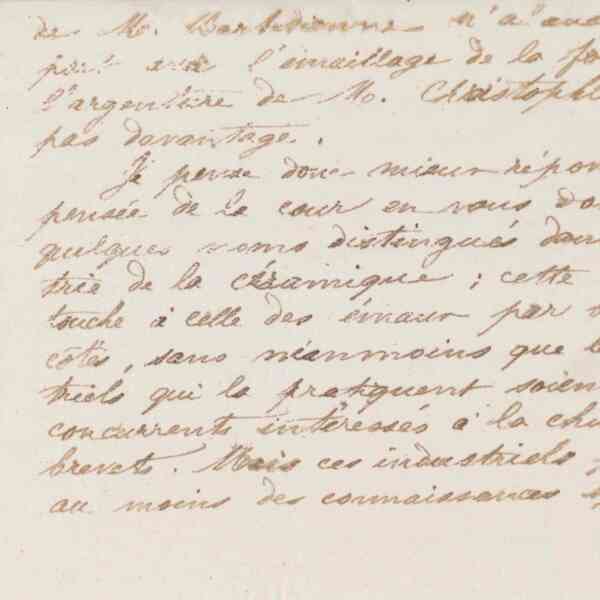 de M. Barbedienne n'a
l'émaillage de la
l'argenture de M. Christophl
pas davantage.
Je pense donc mieux répon
pensée de la cour en vous do
quelques noms distingués dan
trie de la céramique ; cette
touche à celle des émaux par
côtés, sans néanmoins que le
triels qui la pratiquent soien
concurrents intéressés à la chu
brevets. Mais ces industriels
au moins des connaissances